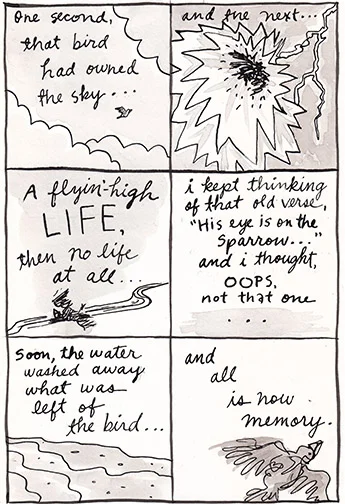 one second,
that bird
had owned
the sky...
and the next...
A flyin'-high
LIFE,
then no life
at all...
i kept thinking
of that old verse,
"His eye is on the
Sparrow..."
and i thought,
OOPS,
not that one
...
Soon, the water
washed away
what was
left of
the bird...
and
all
is now
memory.